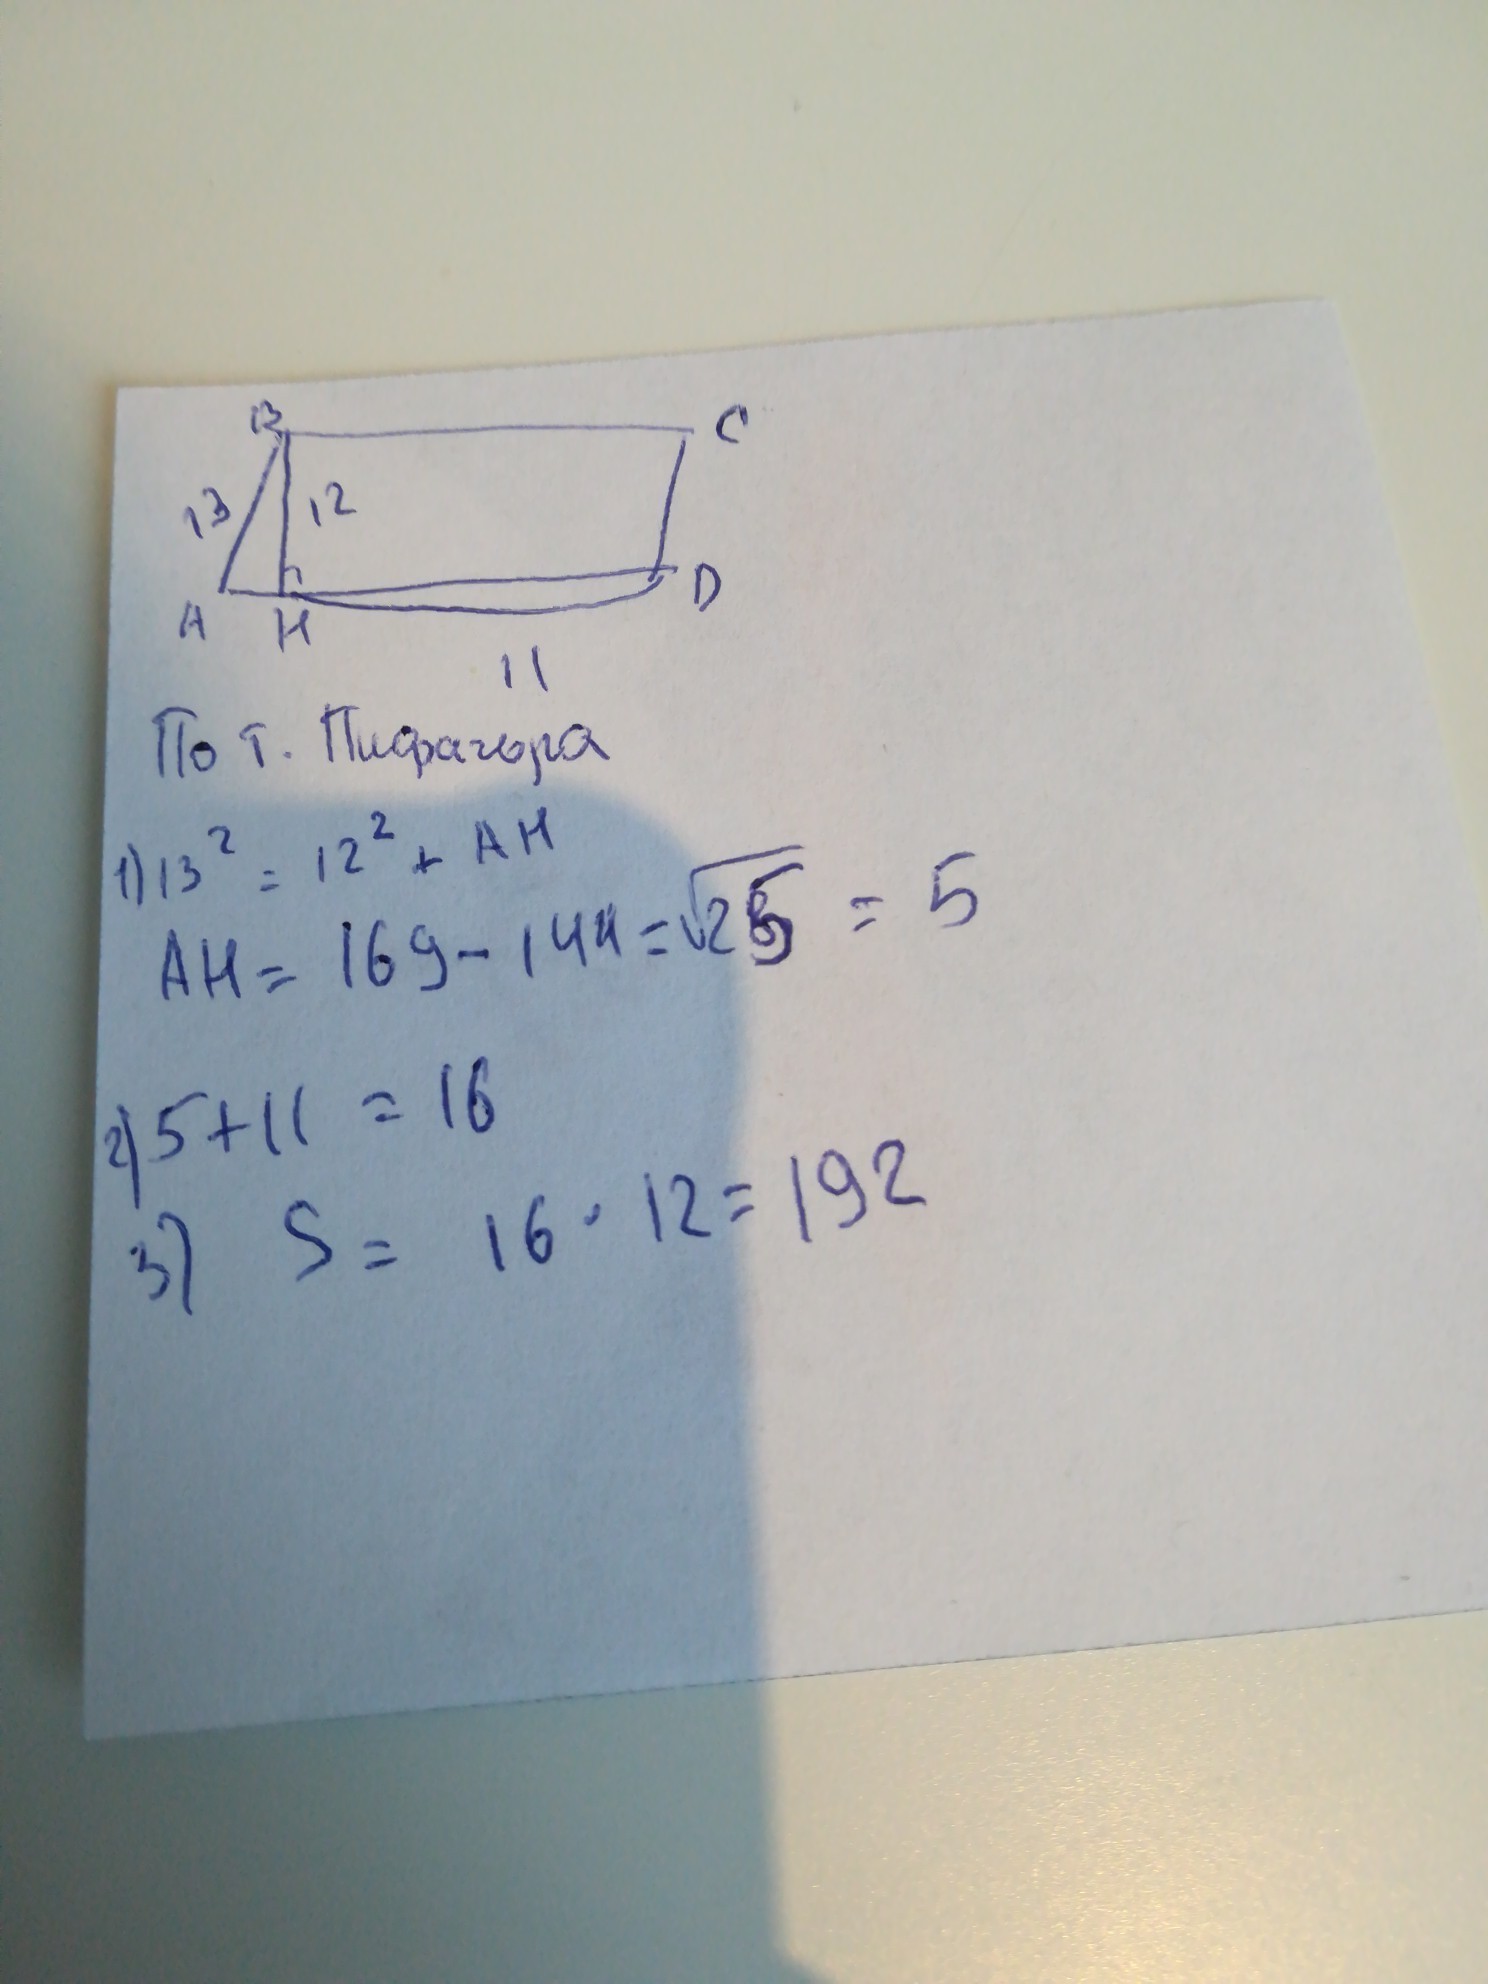 B C
13 12
A H D
11
По т. Пифагора
1) 13² = 12² + AH
AH = 169 - 144 = √25 = 5
2) 5 + 11 = 16
3) S = 16 · 12 = 192